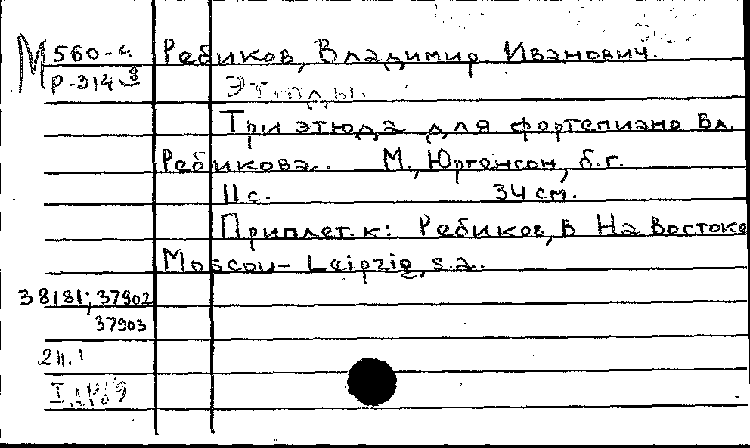 М 560-4 Ребиков, Владимир Иванович.
Р-314 Этюды.
Три этюда для фортепиано Вл.
Ребикова. М., Юргенсон, б.г.
11 с. 34 см.
Приплет. к: Ребиков, В На Востоке
Moscou - Leipzig, s.a.
38181; 37902
37903
2н.